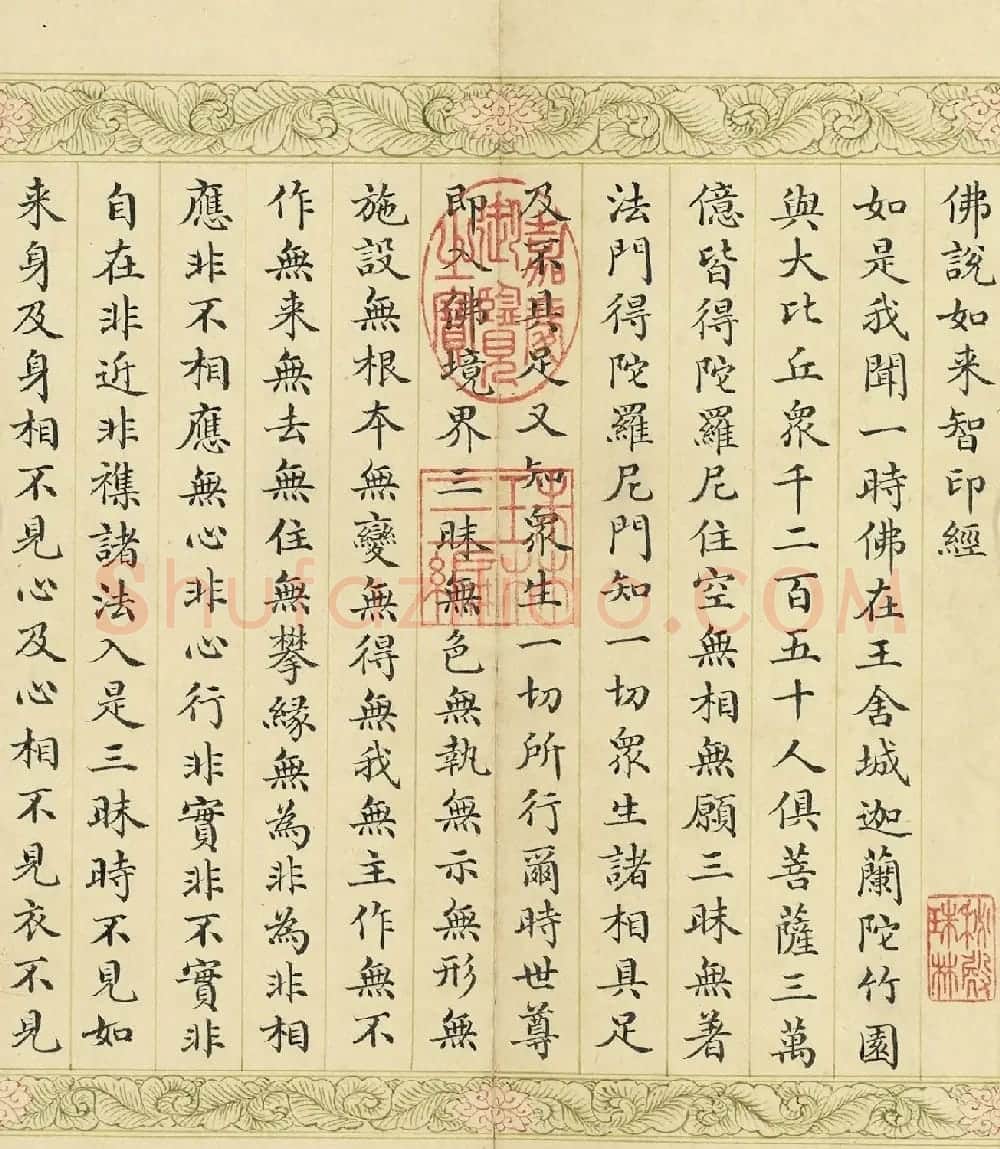 佛說如来智印經
如是我聞一時佛在王舍城迦蘭陀竹園
與大比丘衆千二百五十人俱菩薩三萬
億皆得陀羅尼住空無相無願三昧無著
法門得陀羅尼門知一切衆生諸相具足
及不具足又知衆生一切所行爾時世尊
即入佛境界三昧無色無執無示無形無
施設無根本無變無得無我無主作無不
作無来無去無住無攀緣無為非為非相
應非不相應無心非心行非實非不實非
自在非近非襍諸法入是三昧時不見如
来身及身相不見心及心相不見衣不見
嘉慶御覽之寶
秘殿珠林
Shufazidao.COM